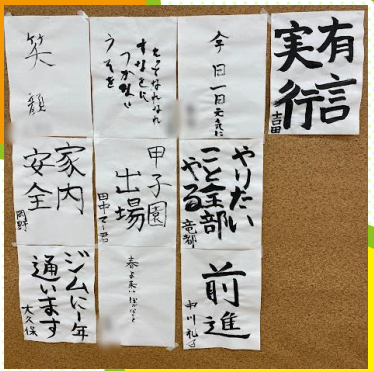 笑顔
うそを
つかない
今日一日元気に
有言
実行
吉田
家内
安全
岡野
甲子園
出場
田中マー君
やりたい
こと全部
やる
竜都
ジムに一年
通います
大久保
前進
中川礼子